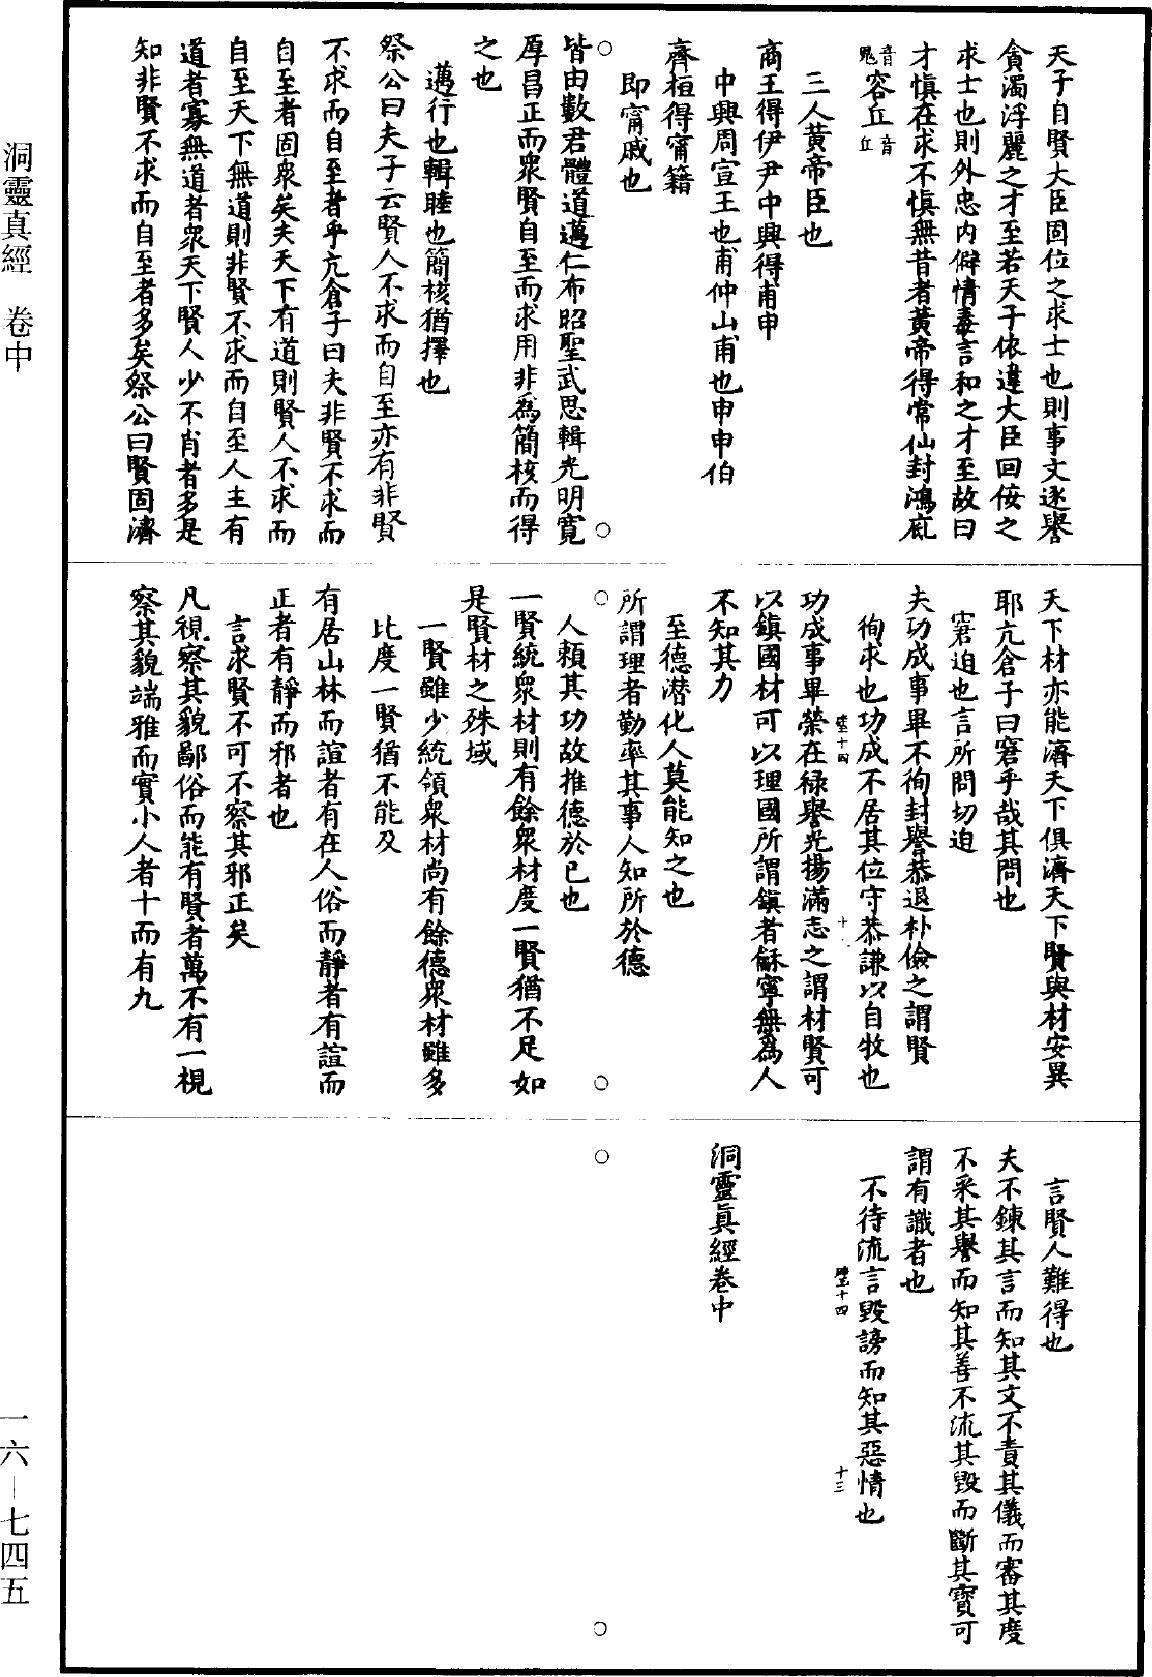 天子自賢大臣固位之求士也則事文逐譽
貪濁浮麗之才至若天子依違大臣回佞之
求士也則外忠內僻情毒言和之才至故曰
才慎在求不慎無昔者黃帝得常仙封鴻㡳
音鬼容丘音丘
三人黃帝臣也
商王得伊尹中興得甫申
中興周宣王也甫仲山甫也申申伯
齊桓得甯籍
即甯戚也
皆由數君體道邁仁布昭聖武思輯光明寬
厚昌正而衆賢自至而求用非為簡核而得
之也
邁行也輯睦也簡核猶擇也
祭公曰夫子云賢人不求而自至亦有非賢
不求而自至者乎亢倉子曰夫非賢不求而
自至者固衆矣夫天下有道則賢人不求而
自至天下無道則非賢不求而自至人主有
道者寡無道者衆天下賢人少不肖者多是
知非賢不求而自至者多矣祭公曰賢固濟
天下材亦能濟天下俱濟天下賢與材安異
耶亢倉子曰窘乎哉其問也
窘迫也言所問切迫
夫功成事畢不徇封譽恭退朴儉之謂賢
徇求也功成不居其位守恭謙以自牧也
功成事畢榮在祿譽光揚滿志之謂材賢可
以鎮國材可以理國所謂鎮者龢寧無為人
不知其力
至德潛化人莫能知之也
所謂理者勤率其事人知所於德
人賴其功故推德於已也
一賢統衆材則有餘衆材度一賢猶不足如
是賢材之殊域
一賢雖少統領衆材尚有餘德衆材雖多
比度一賢猶不能及
有居山林而諠者有在人俗而靜者有諠而
正者有靜而邪者也
言求賢不可不察其邪正矣
凡視察其貌鄙俗而能有賢者萬不有一視
察其貌端雅而實小人者十而有九
言賢人難得也
夫不鍊其言而知其文不責其儀而審其度
不采其譽而知其善不流其毀而斷其實可
謂有識者也
不待流言毀謗而知其惡情也
洞靈眞經卷中
洞靈真經 卷中
一六—七四五